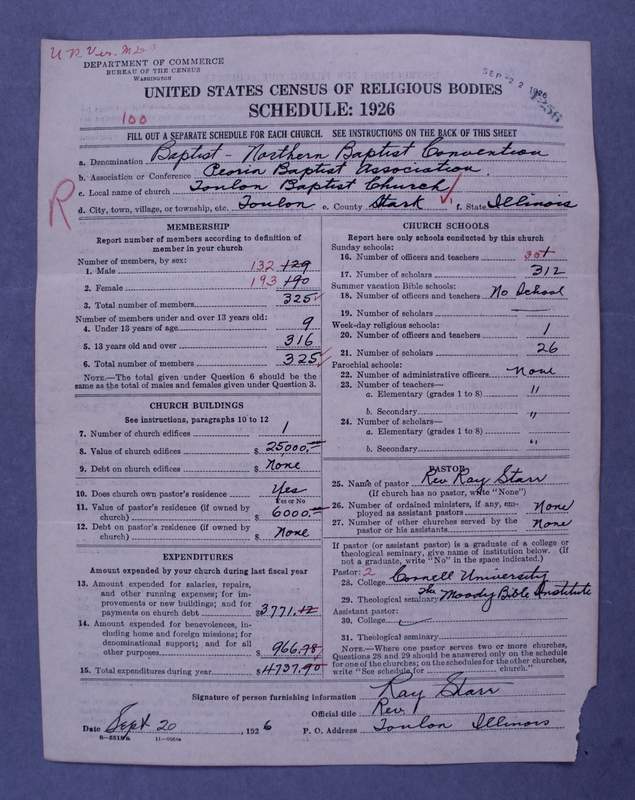 DEPARTMENT OF COMMERCE
BUREAU OF THE CENSUS
WASHINGTON
SEP 22 1926
UNITED STATES CENSUS OF RELIGIOUS BODIES
SCHEDULE: 1926
100
FILL OUT A SEPARATE SCHEDULE FOR EACH CHURCH. SEE INSTRUCTIONS ON THE BACK OF THIS SHEET
R
a. Denomination Baptist - Northern Baptist Convention
b. Association or Conference Peoria Baptist Association.
c. Local name of church Toulon Baptist Church
d. City, town, village, or township, etc. Toulon e. County Stark f. State Illinois
MEMBERSHIP
Report number of members according to definition of
member in your church
Number of members, by sex:
1. Male 132 129
2. Female 193 190
3. Total number of members 325
Number of members under and over 13 years old:
4. Under 13 years of age 9
5. 13 years old and over 316
6. Total number of members 325
NOTE.—The total given under Question 6 should be the
same as the total of males and females given under Question 3.
CHURCH BUILDINGS
See instructions, paragraphs 10 to 12
7. Number of church edifices 1
8. Value of church edifices $ 25000,
9. Debt on church edifices $ None
10. Does church own pastor's residence Yes
Yes or No
11. Value of pastor's residence (if owned by
church) $ 6000,
12. Debt on pastor's residence (if owned by
church) $ None
EXPENDITURES
Amount expended by your church during last fiscal year
13. Amount expended for salaries, repairs,
and other running expenses; for im-
provements or new buildings; and for
payments on church debt $ 3771.12
14. Amount expended for benevolences, in-
cluding home and foreign missions; for
denominational support; and for all
other purposes $ 966.78
15. Total expenditures during year $ 4737.90
CHURCH SCHOOLS
Report here only schools conducted by this church
Sunday schools:
16. Number of officers and teachers
17. Number of scholars 312
Summer vacation Bible schools:
18. Number of officers and teachers No School
19. Number of scholars
Week-day religious schools:
20. Number of officers and teachers 1
21. Number of scholars 26
Parochial schools:
22. Number of administrative officers None
23. Number of teachers—
a. Elementary (grades 1 to 8) "
b. Secondary "
24. Number of scholars—
a. Elementary (grades 1 to 8)
b. Secondary "
PASTOR
25. Name of pastor Rev Kay Starr
(If church has no pastor, write "None")
26. Number of ordained ministers, if any, em-
ployed as assistant pastors None
27. Number of other churches served by the
pastor or his assistants None
If pastor (or assistant pastor) is a graduate of a college or
theological seminary, give name of institution below. (If
not a graduate, write "No" in the space indicated.)
Pastor: 2
28. College Cornell University
29. Theological seminary The Moody Bible Institute
Assistant pastor:
30. College
31. Theological seminary
NOTE.—Where one pastor serves two or more churches,
Questions 28 and 29 should be answered only on the schedule
for one of the churches; on the schedules for the other churches,
write "See schedule for church."
Signature of person furnishing information Kay Starr
Official title Rev.
Date Sept 20, 1926 P. O. Address Toulon Illinois